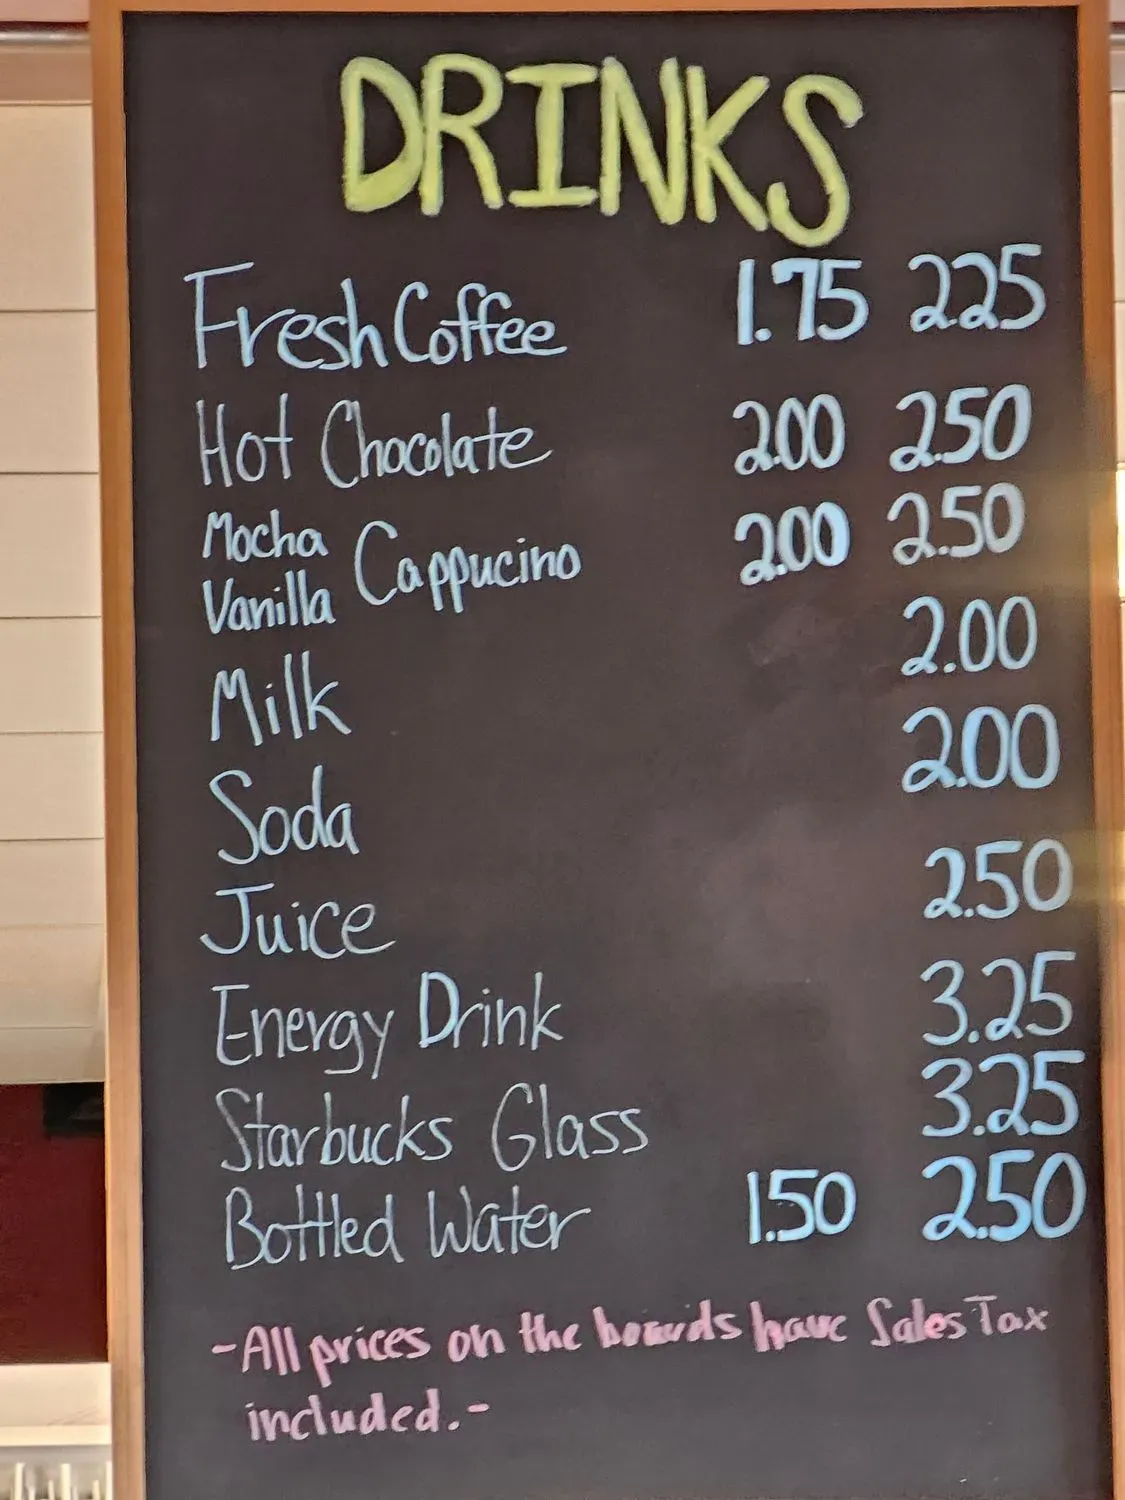 DRINKS
Fresh Coffee 1.75 2.25
Hot Chocolate 2.00 2.50
Mocha
Vanilla Cappucino 2.00 2.50
Milk 2.00
Soda 2.00
Juice 2.50
Energy Drink 3.25
Starbucks Glass 3.25
Bottled Water 1.50 2.50
-All prices on the boards have Sales Tax
included.-